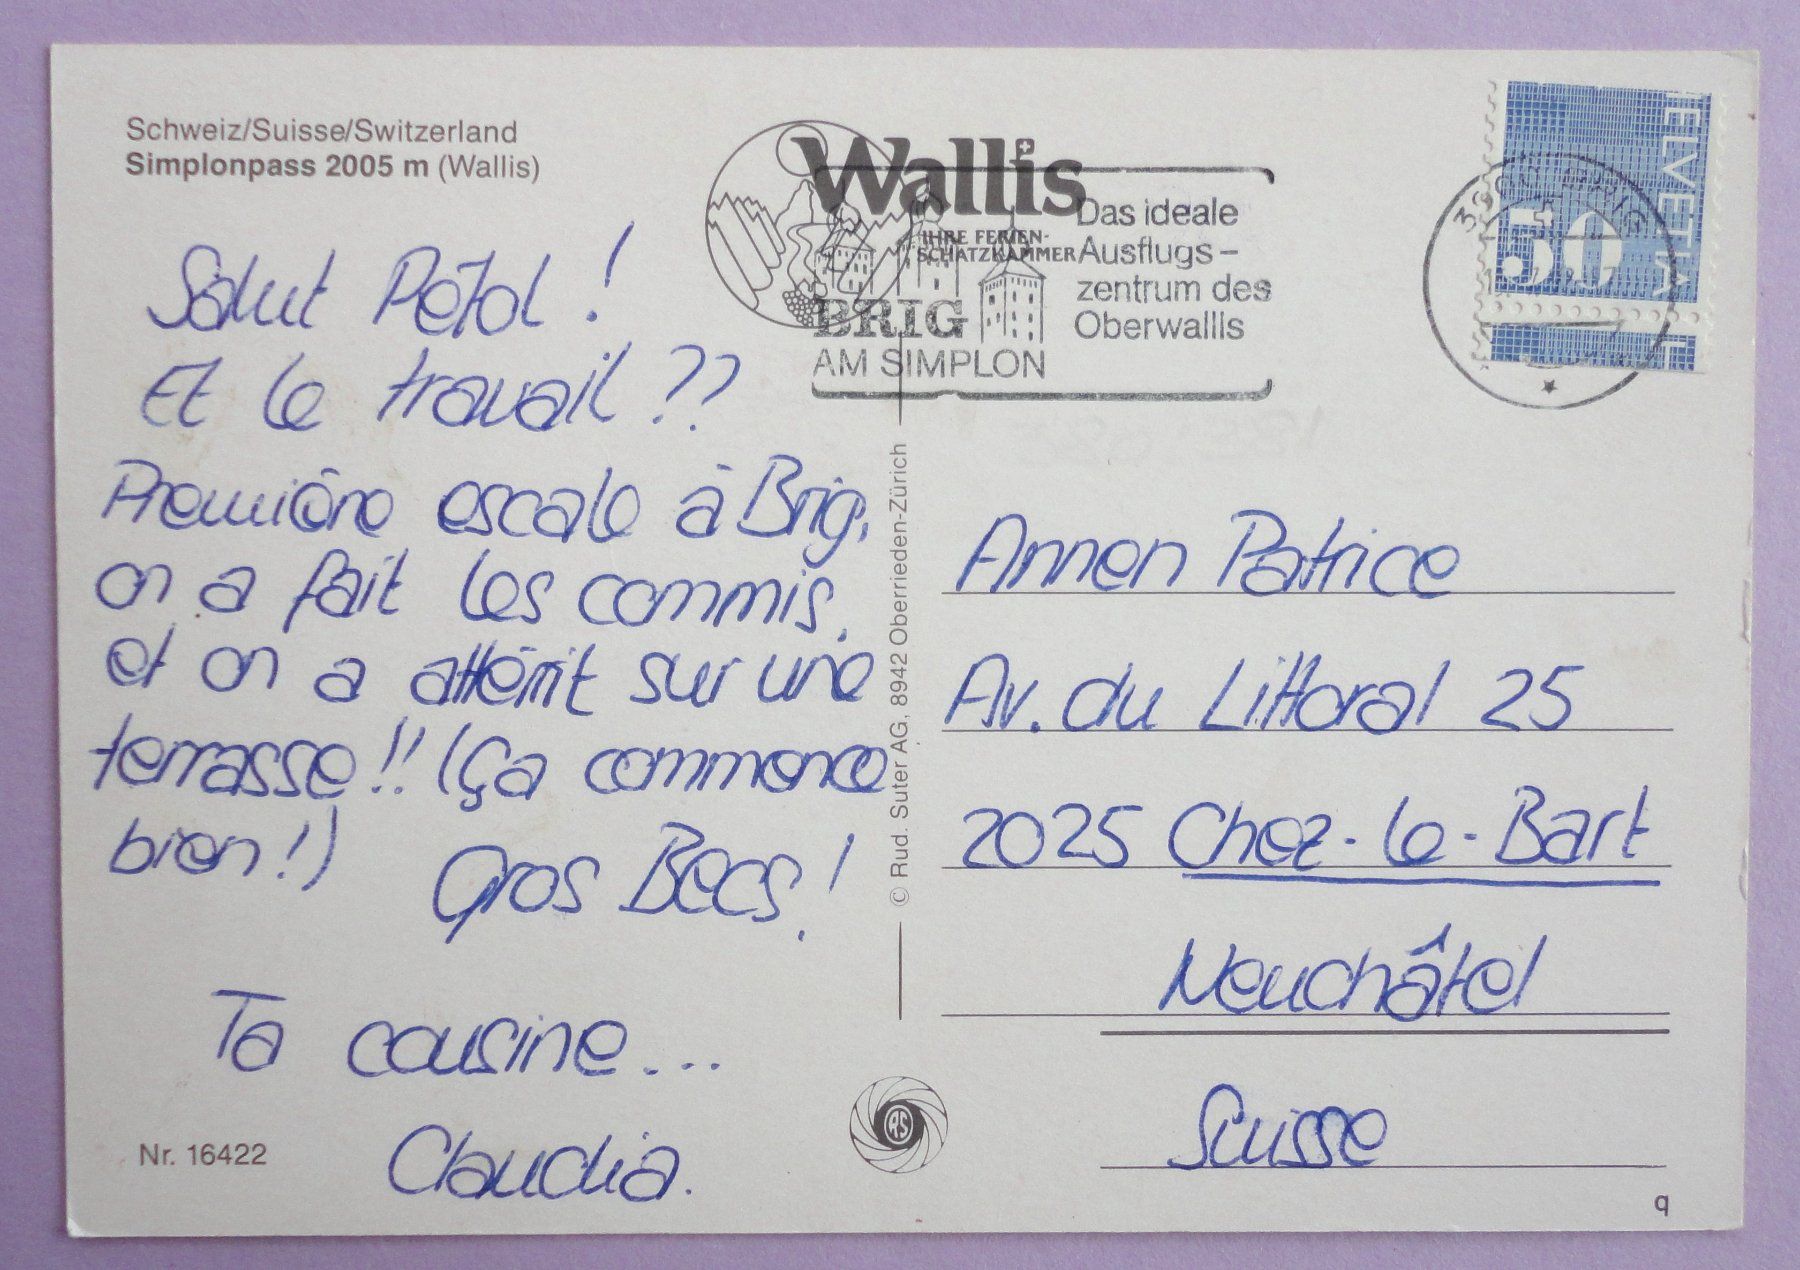 Schweiz/Suisse/Switzerland
Simplonpass 2005 m (Wallis)
Salut Pétol !
Et le travail ??
Première escale à Brig,
on a fait les commis.
et on a attérrit sur une
terrasse !! (Ça commence
bien !)
Gros Becs !
Ta cousine...
Claudia.
Nr. 16422
Wallis
IHRE FERIEN-
SCHATZKAMMER
BRIG
AM SIMPLON
Das ideale
Ausflugs-
zentrum des
Oberwallis
HELVETIA
50
BRIG
© Rud. Suter AG, 8942 Oberrieden-Zürich
RS
Annen Patrice
Av. du Littoral 25
2025 Chez-le-Bart
Neuchâtel
Suisse
q